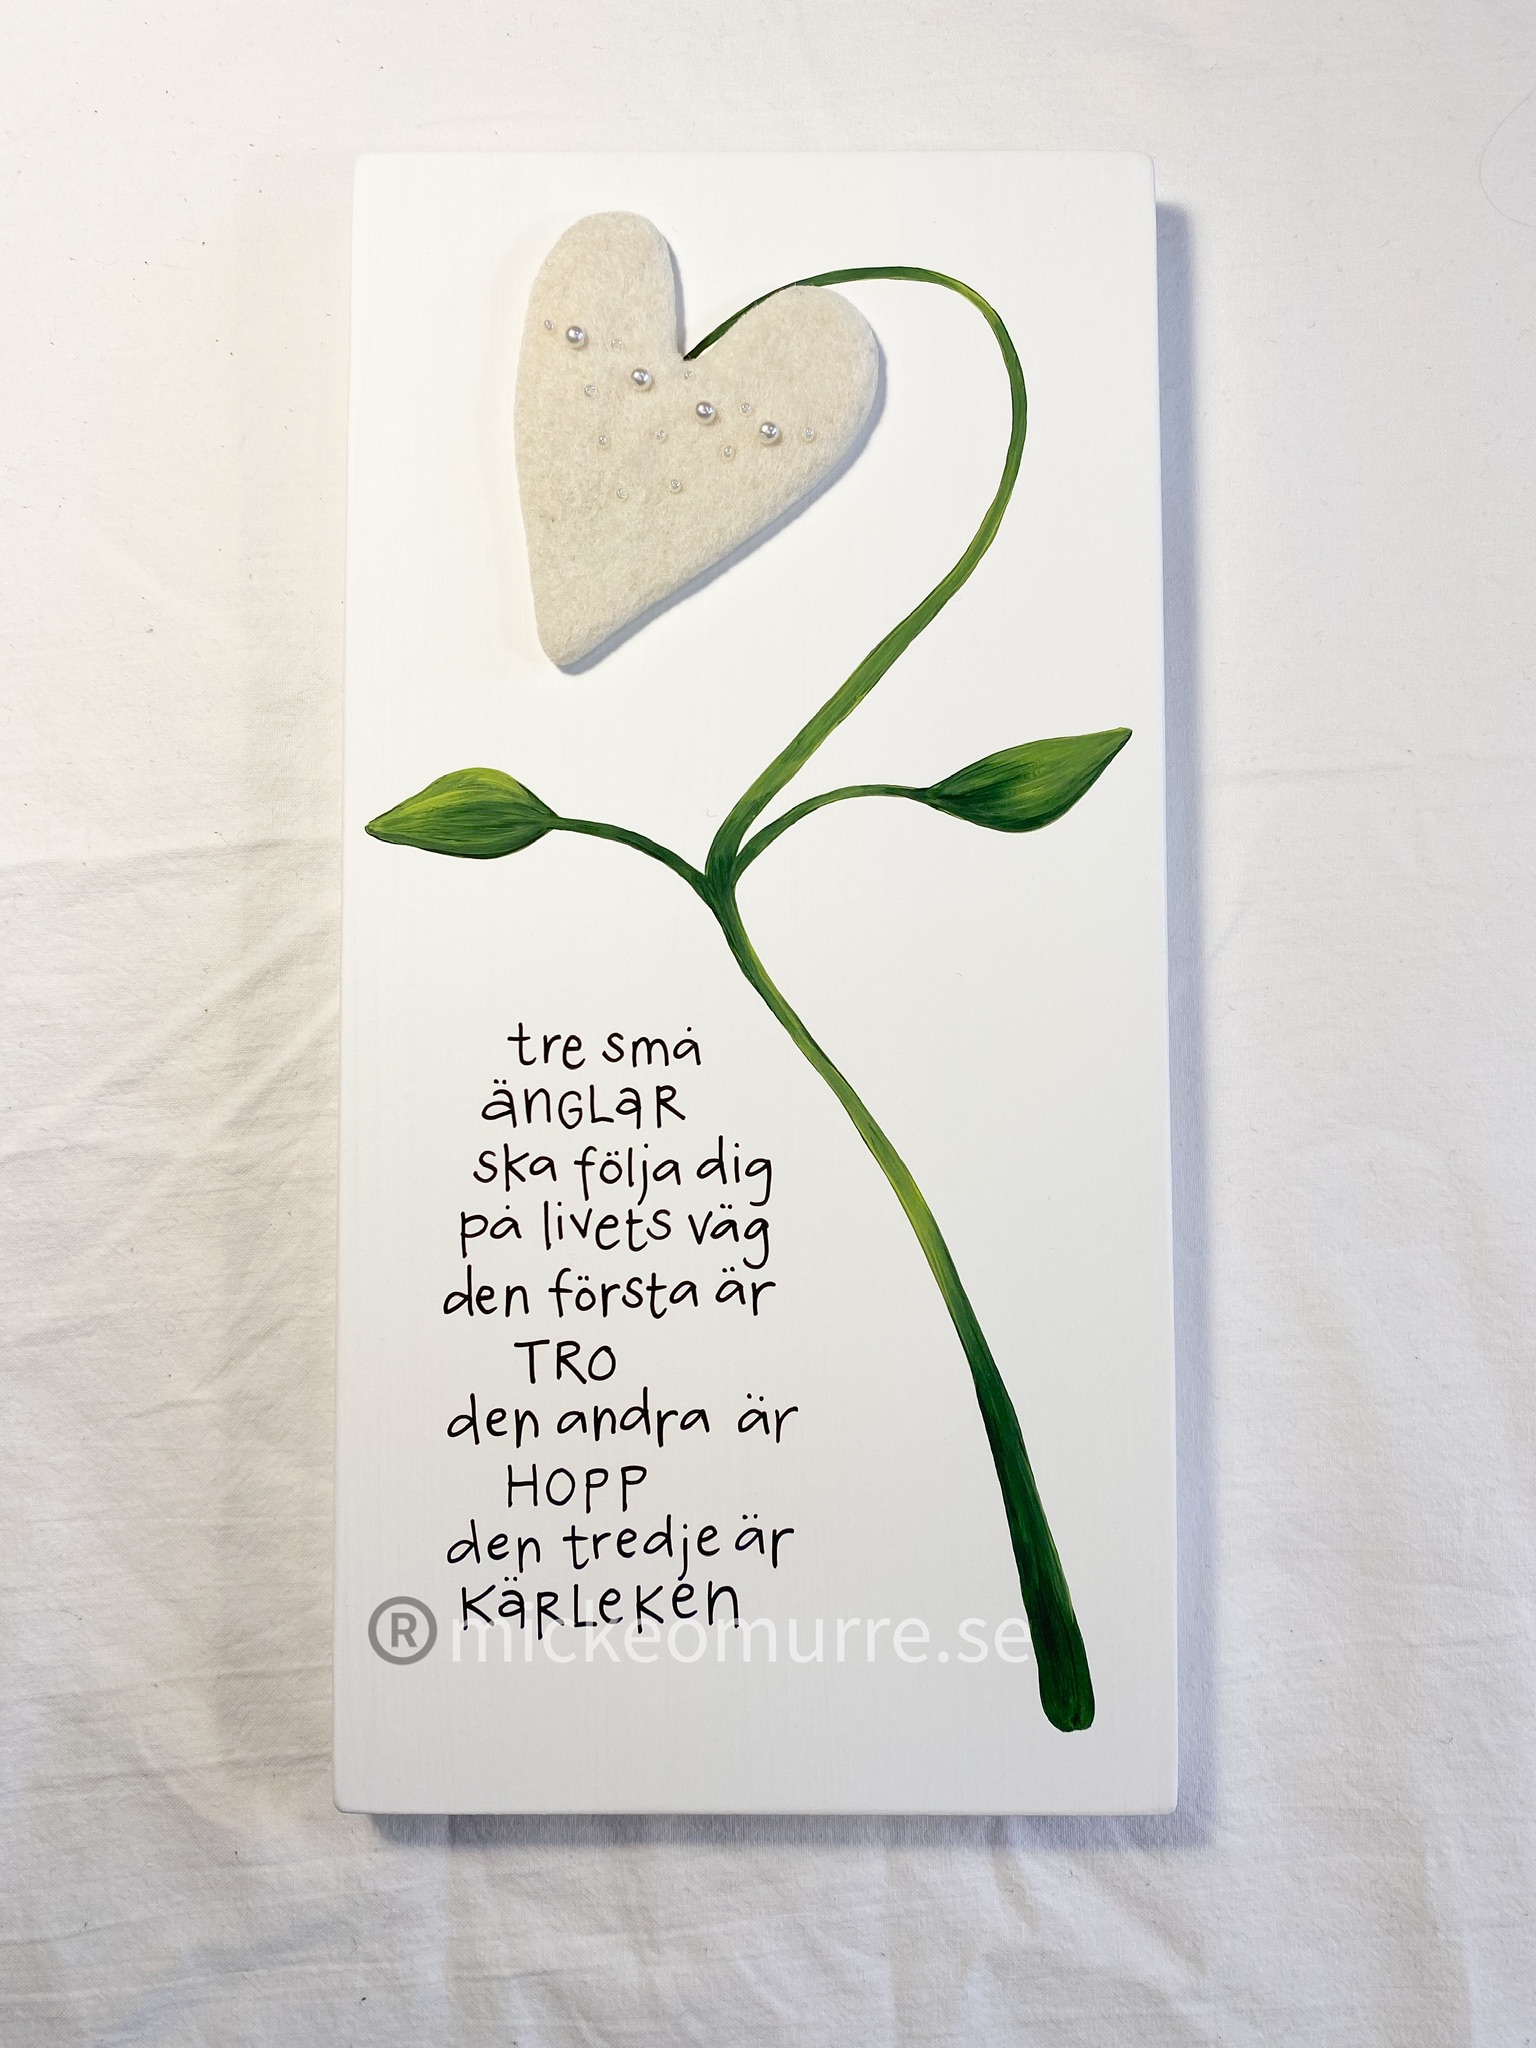 tre små
änGLaR
ska följa dig
på livets väg
den första är
TRO
den andra är
HOPP
den tredje är
KäRLeKen
® mickeomurre.se